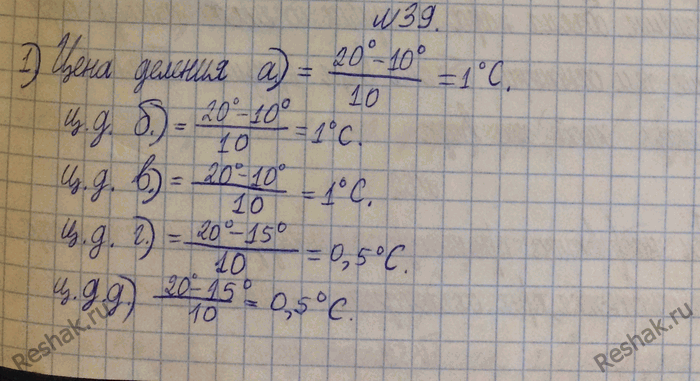 №39.
1) Цена деления а.) = 20°-10° / 10 = 1°С.
ц.д. б.) = 20°-10° / 10 = 1°С.
ц.д. в.) = 20°-10° / 10 = 1°С.
ц.д. г.) = 20°-15° / 10 = 0,5°С.
ц.д.д.) 20°-15° / 10 = 0,5°С.
Reshak.ru
Reshak.ru